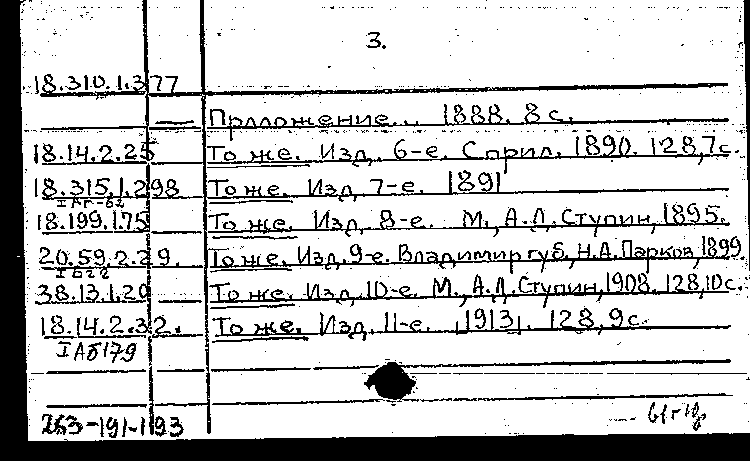 3.
18.310.1.377
— Прлложение... 1888. 8 с.
18.14.2.25 То же. Изд. 6-е. С прил. 1890. 128,7 с.
18.315.1.298 То же. Изд. 7-е. 1891
18.199.1.75 То же. Изд. 8-е. М., А.Д. Ступин, 1895.
20.59.2.29. То же. Изд. 9-е. Владимир губ., Н.А. Парков, 1899.
38.13.1.20 То же. Изд. 10-е. М., А.Д. Ступин, 1908. 128,10 с.
18.14.2.32. То же. Изд. 11-е. 1913. 128,9 с.
I АБ179
263-191-1193